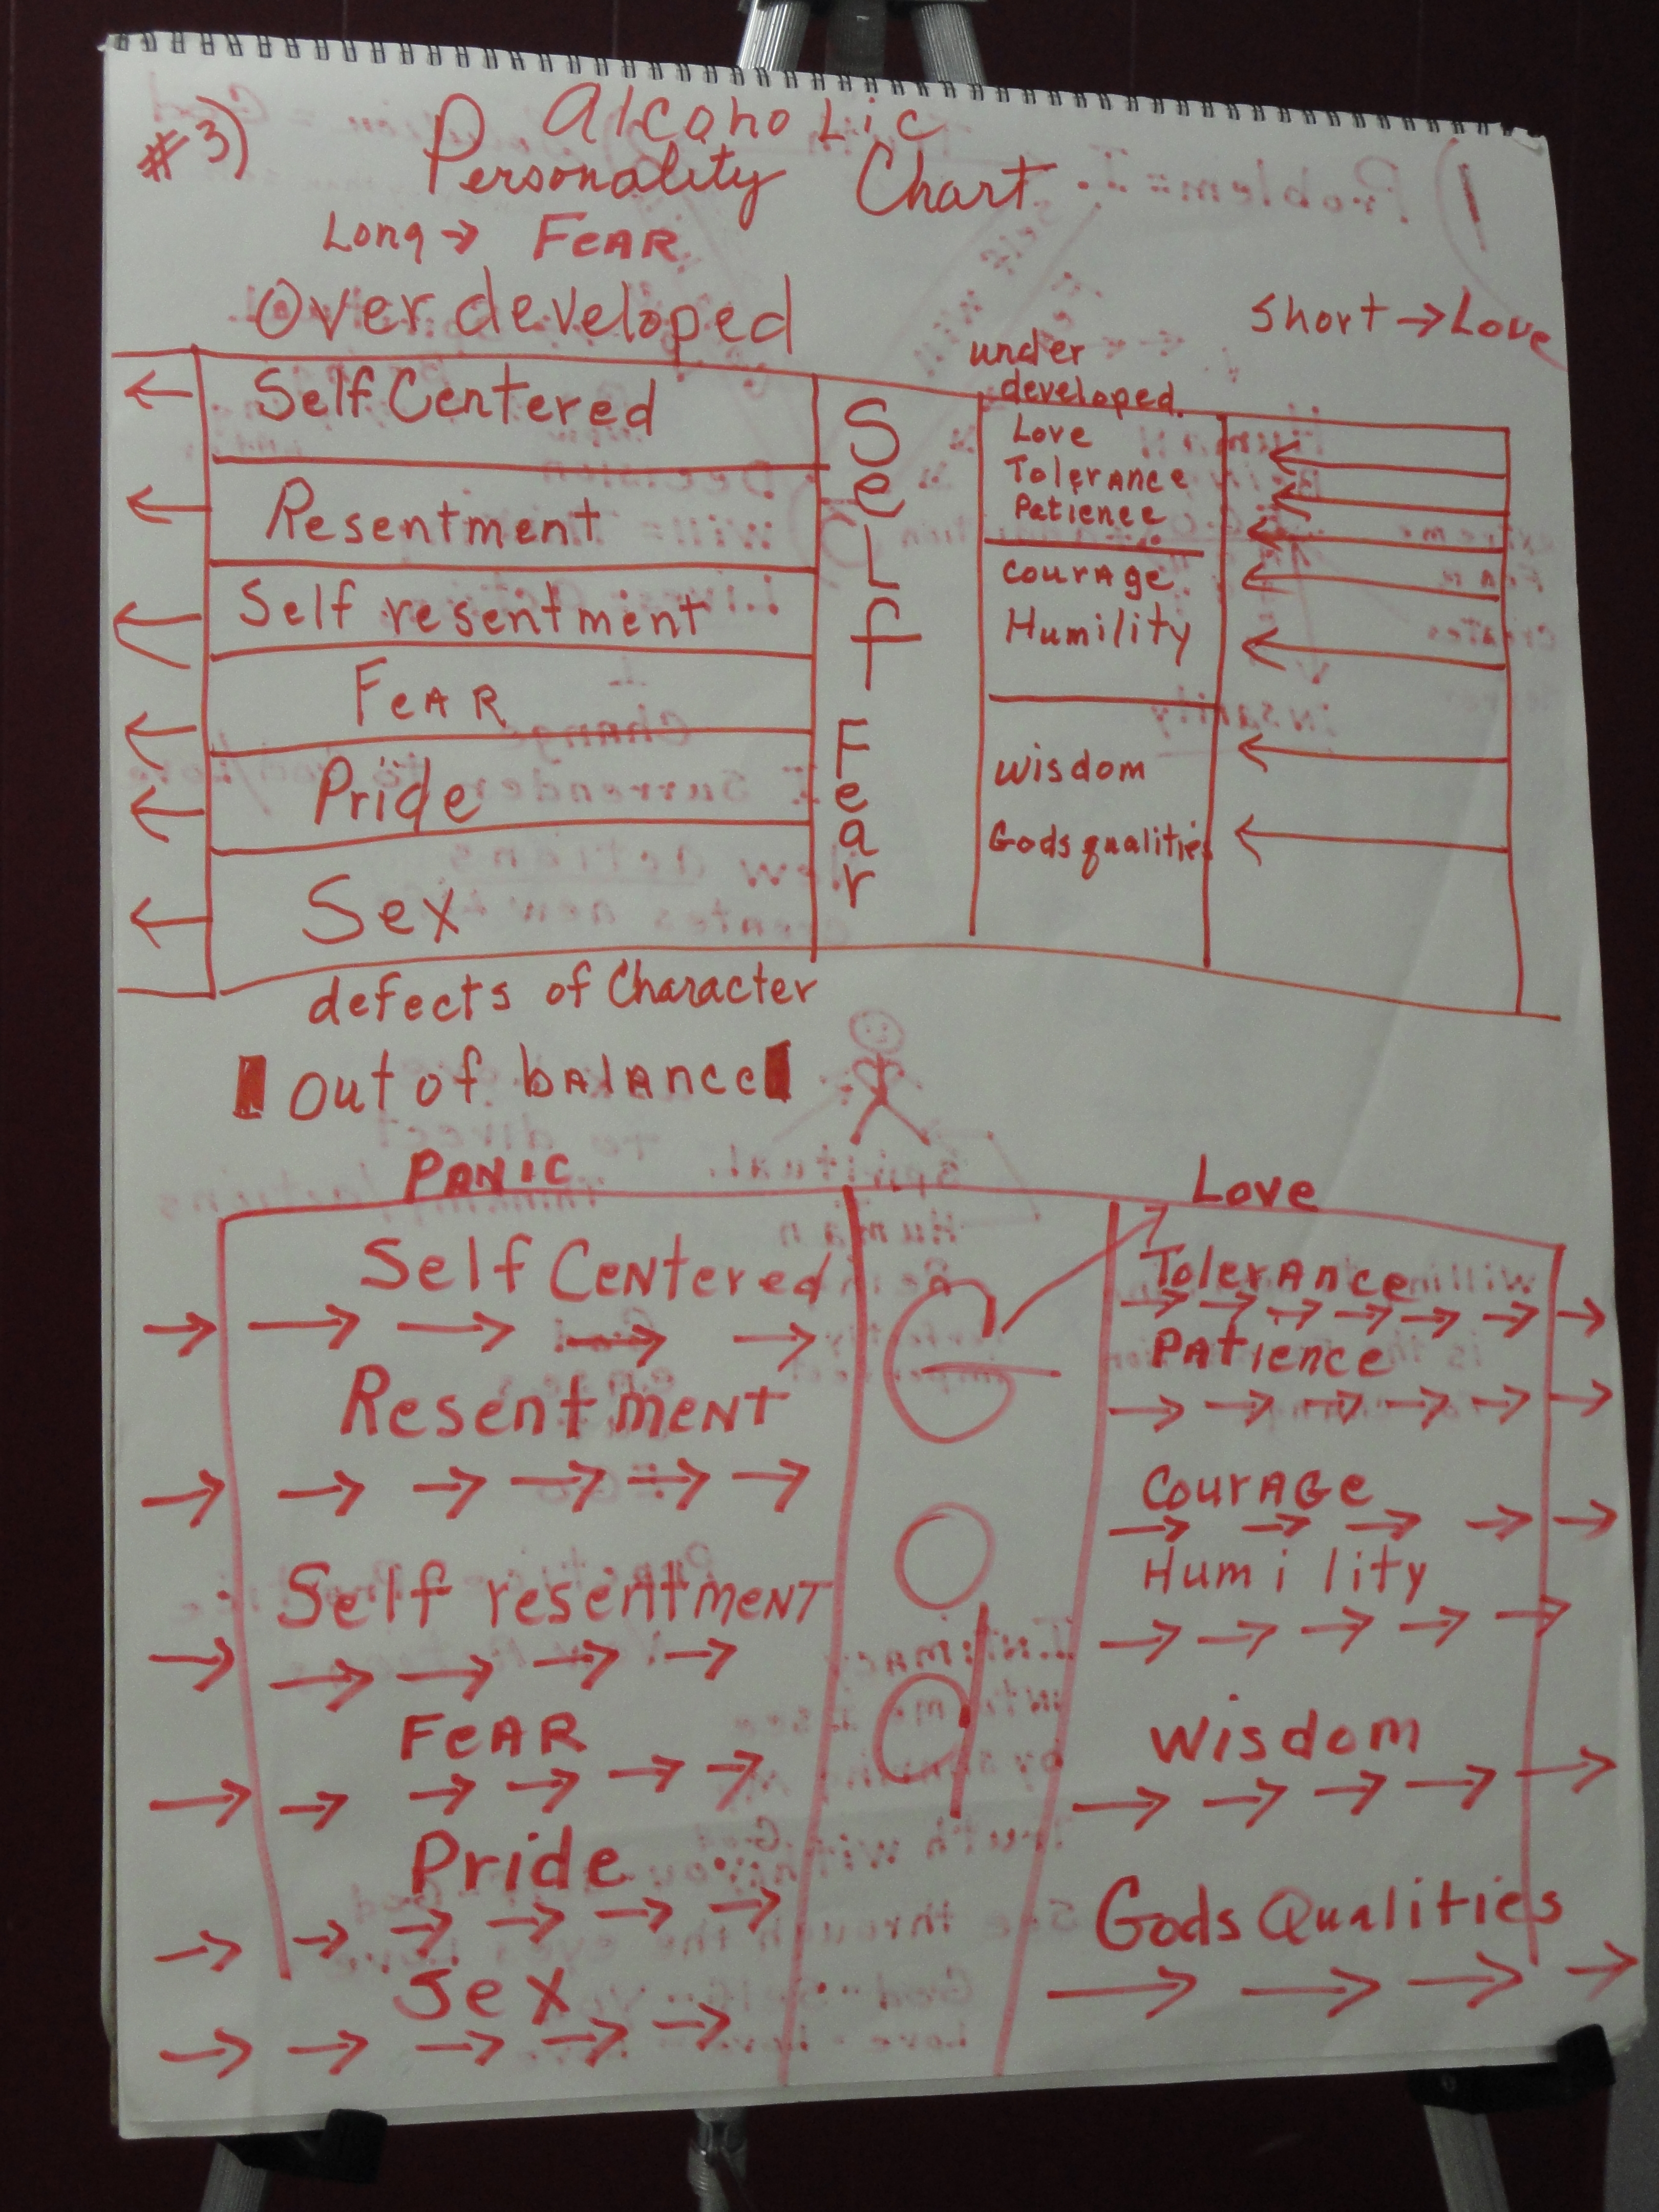 #3)
Alcoholic
Personality Chart
Long → FeAR
Over developed
Short → Love
under
developed.
Self Centered
Resentment
Self resentment
FeAR
Pride
Sex
Self
Fear
Love
Tolerance
Patience
Courage
Humility
Wisdom
Gods qualities
defects of Character
Out of balance
PANIC
Love
Self Centered
Resentment
Self resentment
FeAR
Pride
Sex
God
Tolerance
Patience
Courage
Humility
Wisdom
Gods Qualities